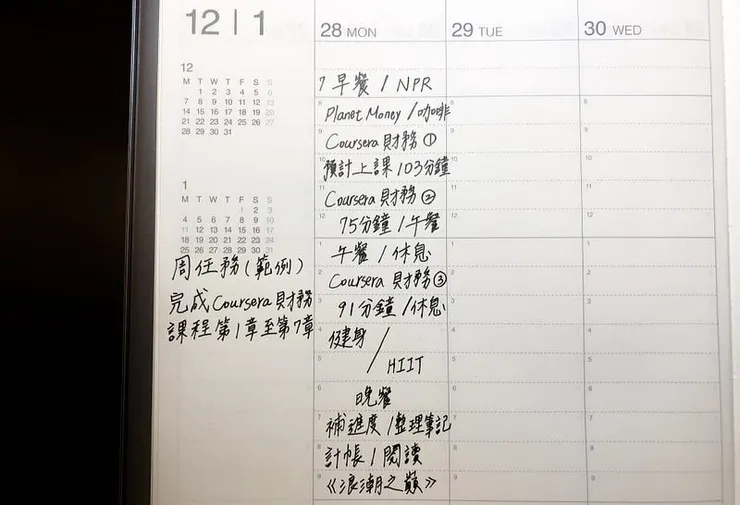 12 | 1
28 MON
29 TUE
30 WED
12
M T W T F S S
1 2 3 4 5 6
7 8 9 10 11 12 13
14 15 16 17 18 19 20
21 22 23 24 25 26 27
28 29 30 31
1
M T W T F S S
1 2 3
4 5 6 7 8 9 10
11 12 13 14 15 16 17
18 19 20 21 22 23 24
25 26 27 28 29 30 31
周任務(範例)
完成Coursera財務
課程第1章至第7章
7 早餐 / NPR
8 Planet Money / 咖啡
9 Coursera 財務 ①
10 預計上課 103分鐘
11 Coursera 財務 ②
12 75分鐘 / 午餐
1 午餐 / 休息
2 Coursera 財務 ③
3 91分鐘 / 休息
4 健身 /
5 HIIT
6 晚餐
7 補進度 / 整理筆記
8 計帳 / 閱讀
9 《浪潮之巔》
8 8
9 9
10 10
11 11
12 12
1 1
2 2
3 3
4 4
5 5
6 6
7 7
8 8
9 9